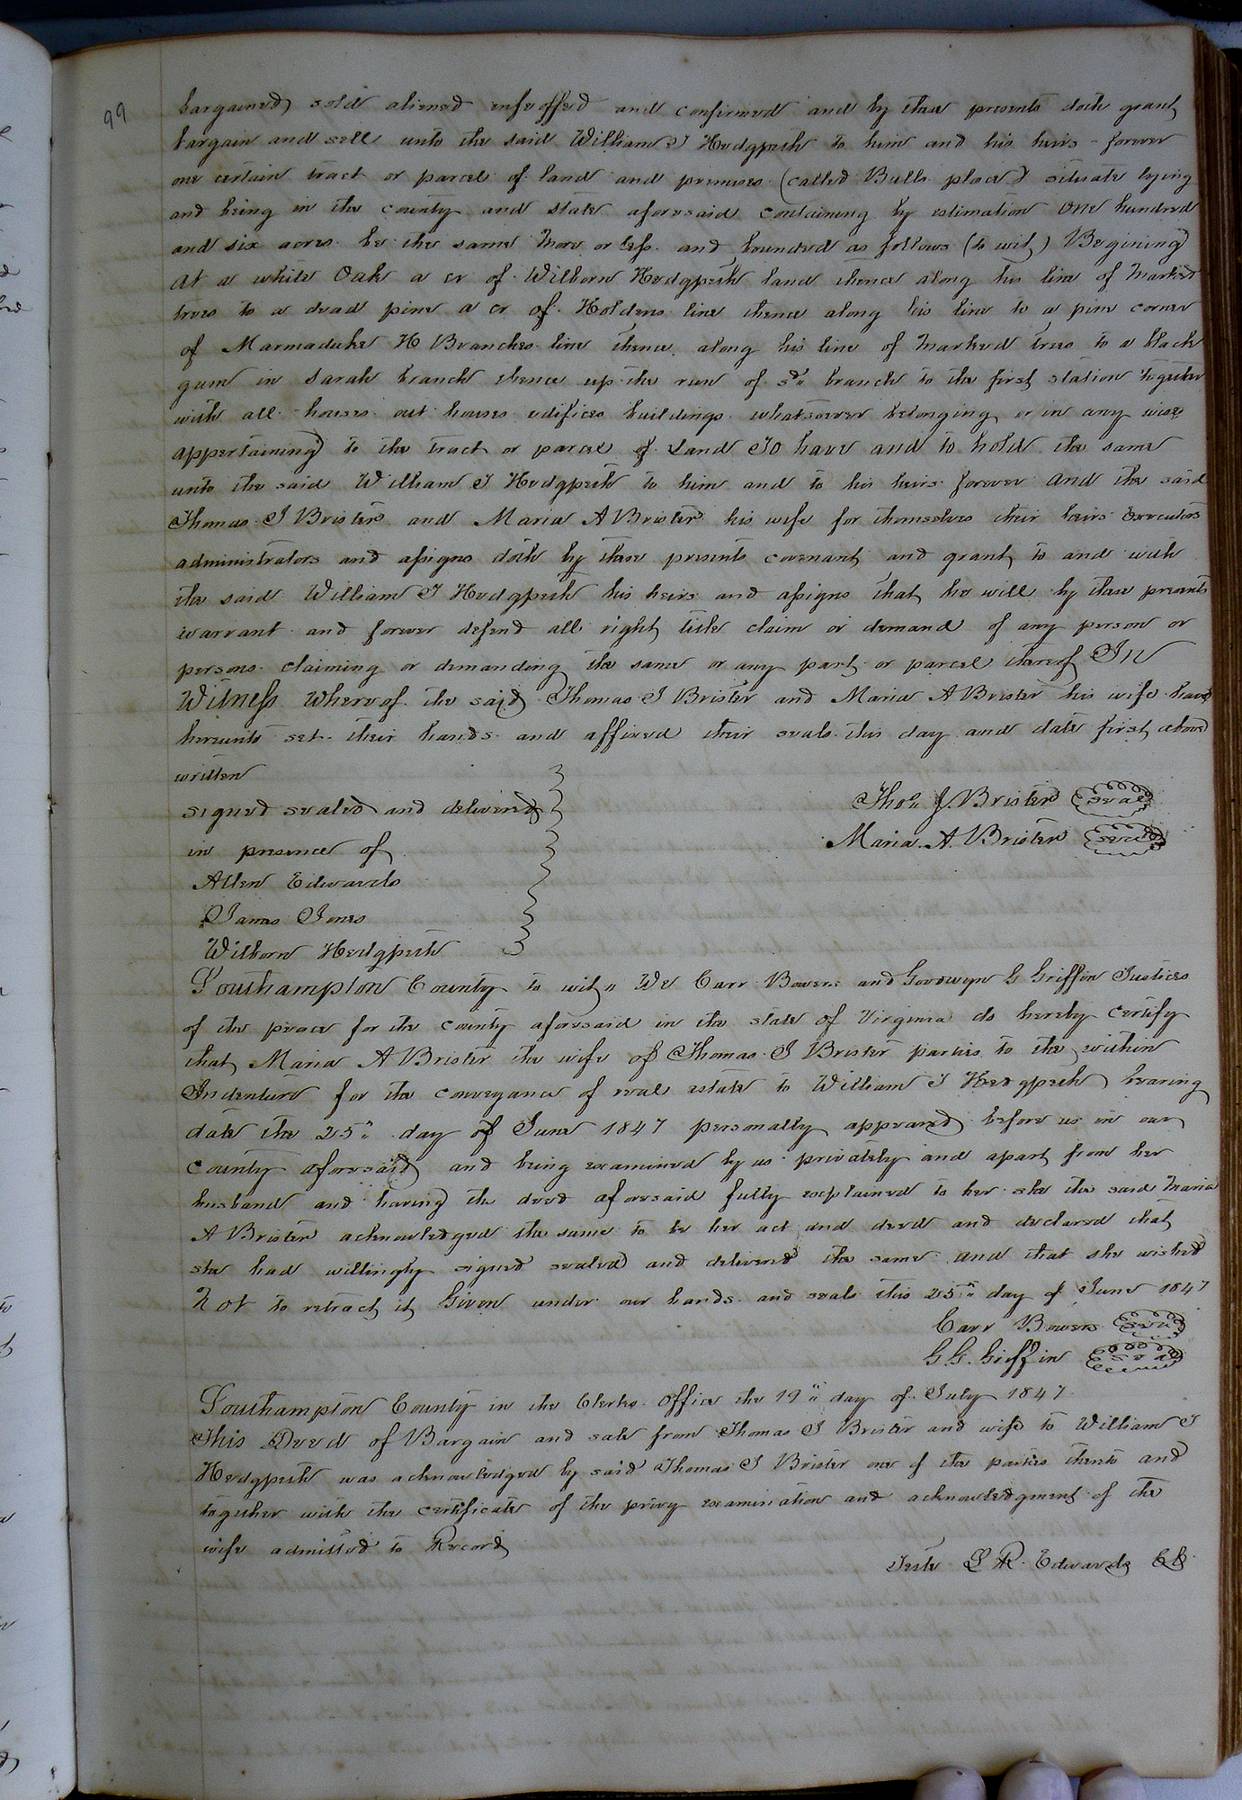 99
bargained sold aliened enfeoffed and confirmed and by these presents doth grant
bargain and sell unto the said William J Hedgpeth to him and his heirs forever
one certain tract or parcel of land and premises (called Bulls place) situate lying
and being in the county and state aforesaid containing by estimation One hundred
and six acres be the same more or less and bounded as follows (to wit) Begining
at a white Oak a cr of Wilborn Hedgpeth land thence along his line of marked
trees to a dead pine a cr of Holdens line thence along his line to a pine corner
of Marmaduke H Branches line thence along his line of marked trees to a black
gum in Sarah branch thence up the run of sd branch to the first station together
with all houses out houses edifices buildings whatsoever belonging or in any wise
appertaining to the tract or parcel of Land To have and to hold the same
unto the said William J Hedgpeth to him and to his heirs forever And the said
Thomas J Brister and Maria A Brister his wife for themselves their heirs Executors
administrators and assigns doth by these presents covenant and grant to and with
the said William J Hedgpeth his heirs and assigns that he will by these presents
warrant and forever defend all right title claim or demand of any person or
persons claiming or demanding the same or any part or parcel thereof In
Witness whereof the said Thomas J Brister and Maria A Brister his wife have
hereunto set their hands and affixed their seals this day and date first above
written
signed sealed and delivered
Thos J. Brister Seal
in presence of
Maria A. Brister Seal
Allen Edwards
James Jones
Wilborn Hedgpeth
Southampton County to wit, We Carr Bowers and Goodwyn G Griffin Justices
of the peace for the county aforesaid in the state of Virginia do hereby certify
that Maria A Brister the wife of Thomas J Brister parties to the within
Indenture for the conveyance of real estate to William J Hedgpeth bearing
date the 25" day of June 1847 personally appeared before us in our
county aforesaid and being examined by us privately and apart from her
husband and having the deed aforesaid fully explained to her she the said Maria
A Brister acknowledged the same to be her act and deed and declared that
she had willingly signed sealed and delivered the same and that she wished
not to retract it Given under our hands and seals this 25" day of June 1847
Carr Bowers Seal
G. G. Griffin Seal
Southampton County in the Clerks Office the 19" day of July 1847
This Deed of Bargain and sale from Thomas J Brister and wife to William J
Hedgpeth was acknowledged by said Thomas J Brister one of the parties thereto and
together with the certificate of the privy examination and acknowledgment of the
wife admitted to Record
Teste L R Edwards CC